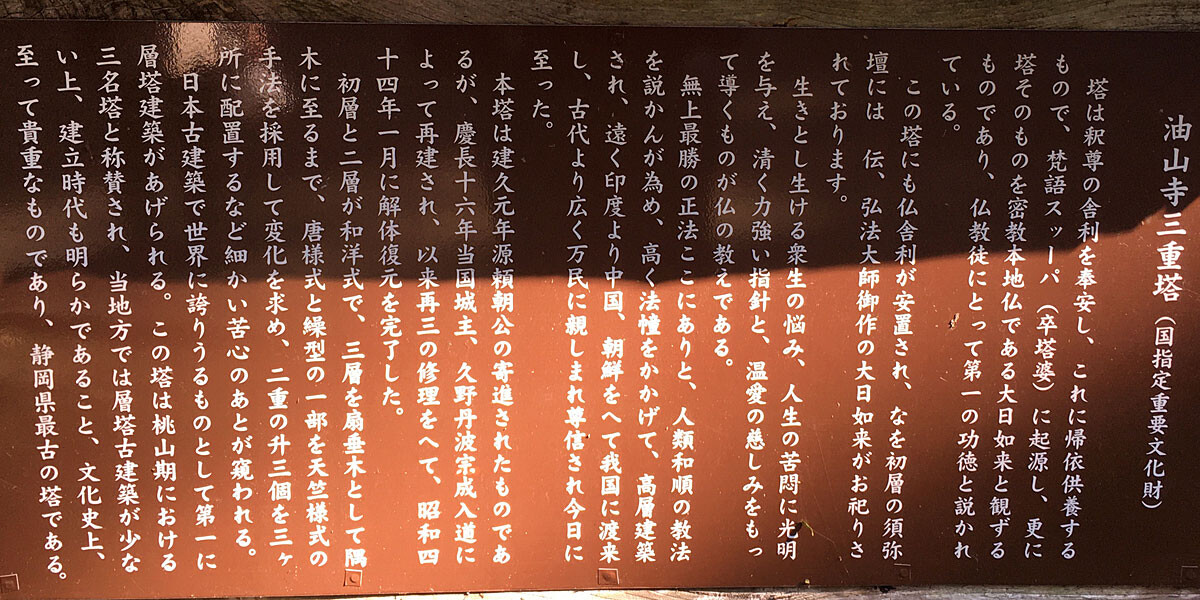 油山寺三重塔（国指定重要文化財）
塔は釈尊の舎利を奉安し、これに帰依供養する
もので、梵語スツーパ（卒塔婆）に起源し、更に
塔そのものを密教本地仏である大日如来と観ずる
ものであり、仏教徒にとって第一の功徳と説かれ
ている。
この塔にも仏舎利が安置され、なを初層の須弥
壇には 伝、弘法大師御作の大日如来がお祀りさ
れております。
生きとし生ける衆生の悩み、人生の苦悶に光明
を与え、清く力強い指針と、温愛の慈しみをもっ
て導くものが仏の教えである。
無上最勝の正法ここにありと、人類和順の教法
を説かんが為め、高く法幢をかかげて、高層建築
され、遠く印度より中国、朝鮮をへて我国に渡来
し、古代より広く万民に親しまれ尊信され今日に
至った。
本塔は建久元年源頼朝公の寄進されたものであ
るが、慶長十六年当国城主、久野丹波宗成入道に
よって再建され、以来再三の修理をへて、昭和四
十四年一月に解体復元を完了した。
初層と二層が和洋式で、三層を扇垂木として隅
木に至るまで、唐様式と繰型の一部を天竺様式の
手法を採用して変化を求め、二重の升三個を三ヶ
所に配置するなど細かい苦心のあとが窺われる。
日本古建築で世界に誇りうるものとして第一に
層塔建築があげられる。この塔は桃山期における
三名塔と称賛され、当地方では層塔古建築が少な
い上、建立時代も明らかであること、文化史上、
至って貴重なものであり、静岡県最古の塔である。